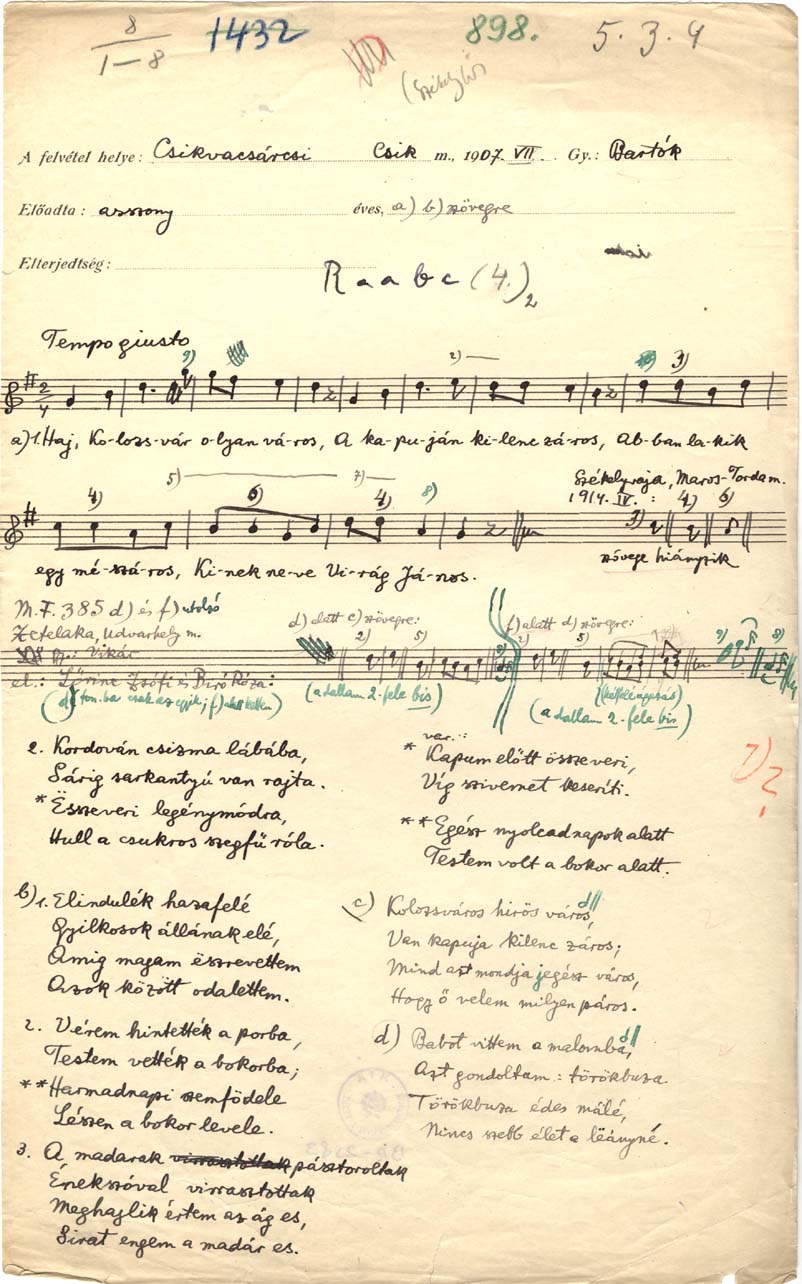 8
1432
898.
5.3.4
1–8
(Székely
A felvétel helye: Csikvacsárcsi Csik m., 1907. VII. Gy.: Bartók
Előadta: asszony éves, a) b) szövegre
Elterjedtség:
R a a b c (4.)2
Tempo giusto
9) 2) 3)
a) 1. Haj, Ko-lozs-vár o-lyan vá-ros, A ka-pu-ján ki-lenc zá-ros, Ab-ban la-kik
5) 7)
4) 6) 4) 8)
Székelyvaja, Maros-Torda m.
1914. IV. : 4) 6)
3)
szövege hiányzik
egy mé-szá-ros, Ki-nek ne-ve Vi-rág Já-nos.
M.F. 385 d) és f) utolsó
Zetelaka, Udvarhely m.
gy.: Vikár
el.: Lőrinc Zsófi és Biró Róza:
d) alatt c) szövegre:
2) 5)
(a dallam 2. fele bis)
f) alatt d) szövegre:
2) 5) 9) 8)
(a dallam 2. fele bis)
2. Kordován csizma lábába,
Sárig sarkantyú van rajta.
* Észeveri legénymódra,
Hull a csukros szegfű róla.
var.:
* Kapum előtt összeveri,
Víg szivemet keseríti.
** Egész nyolcadnapok alatt
Testem volt a bokor alatt.
7) ?
b) 1. Elindulék hazafelé
Gyilkosok állának elé,
Amig magam észrevettem
Azok között odalettem.
2. Vérem hintették a porba,
Testem vették a bokorba;
** Harmadnapi szemfödele
Lészen a bokor levele.
3. A madarak virrasztottak pásztoroltak
Énekszóval virrasztottak
Meghajlik értem az ág es,
Sirat engem a madár es.
c) Kolozsváros hirös város,
Van kapuja kilenc záros;
Mind azt mondja jegész város,
Hogy ő velem milyen páros.
d) Babot vittem a malomba,
Azt gondoltam: törökbuza.
Törökbuza édes málé,
Nincs szebb élet a leányné.